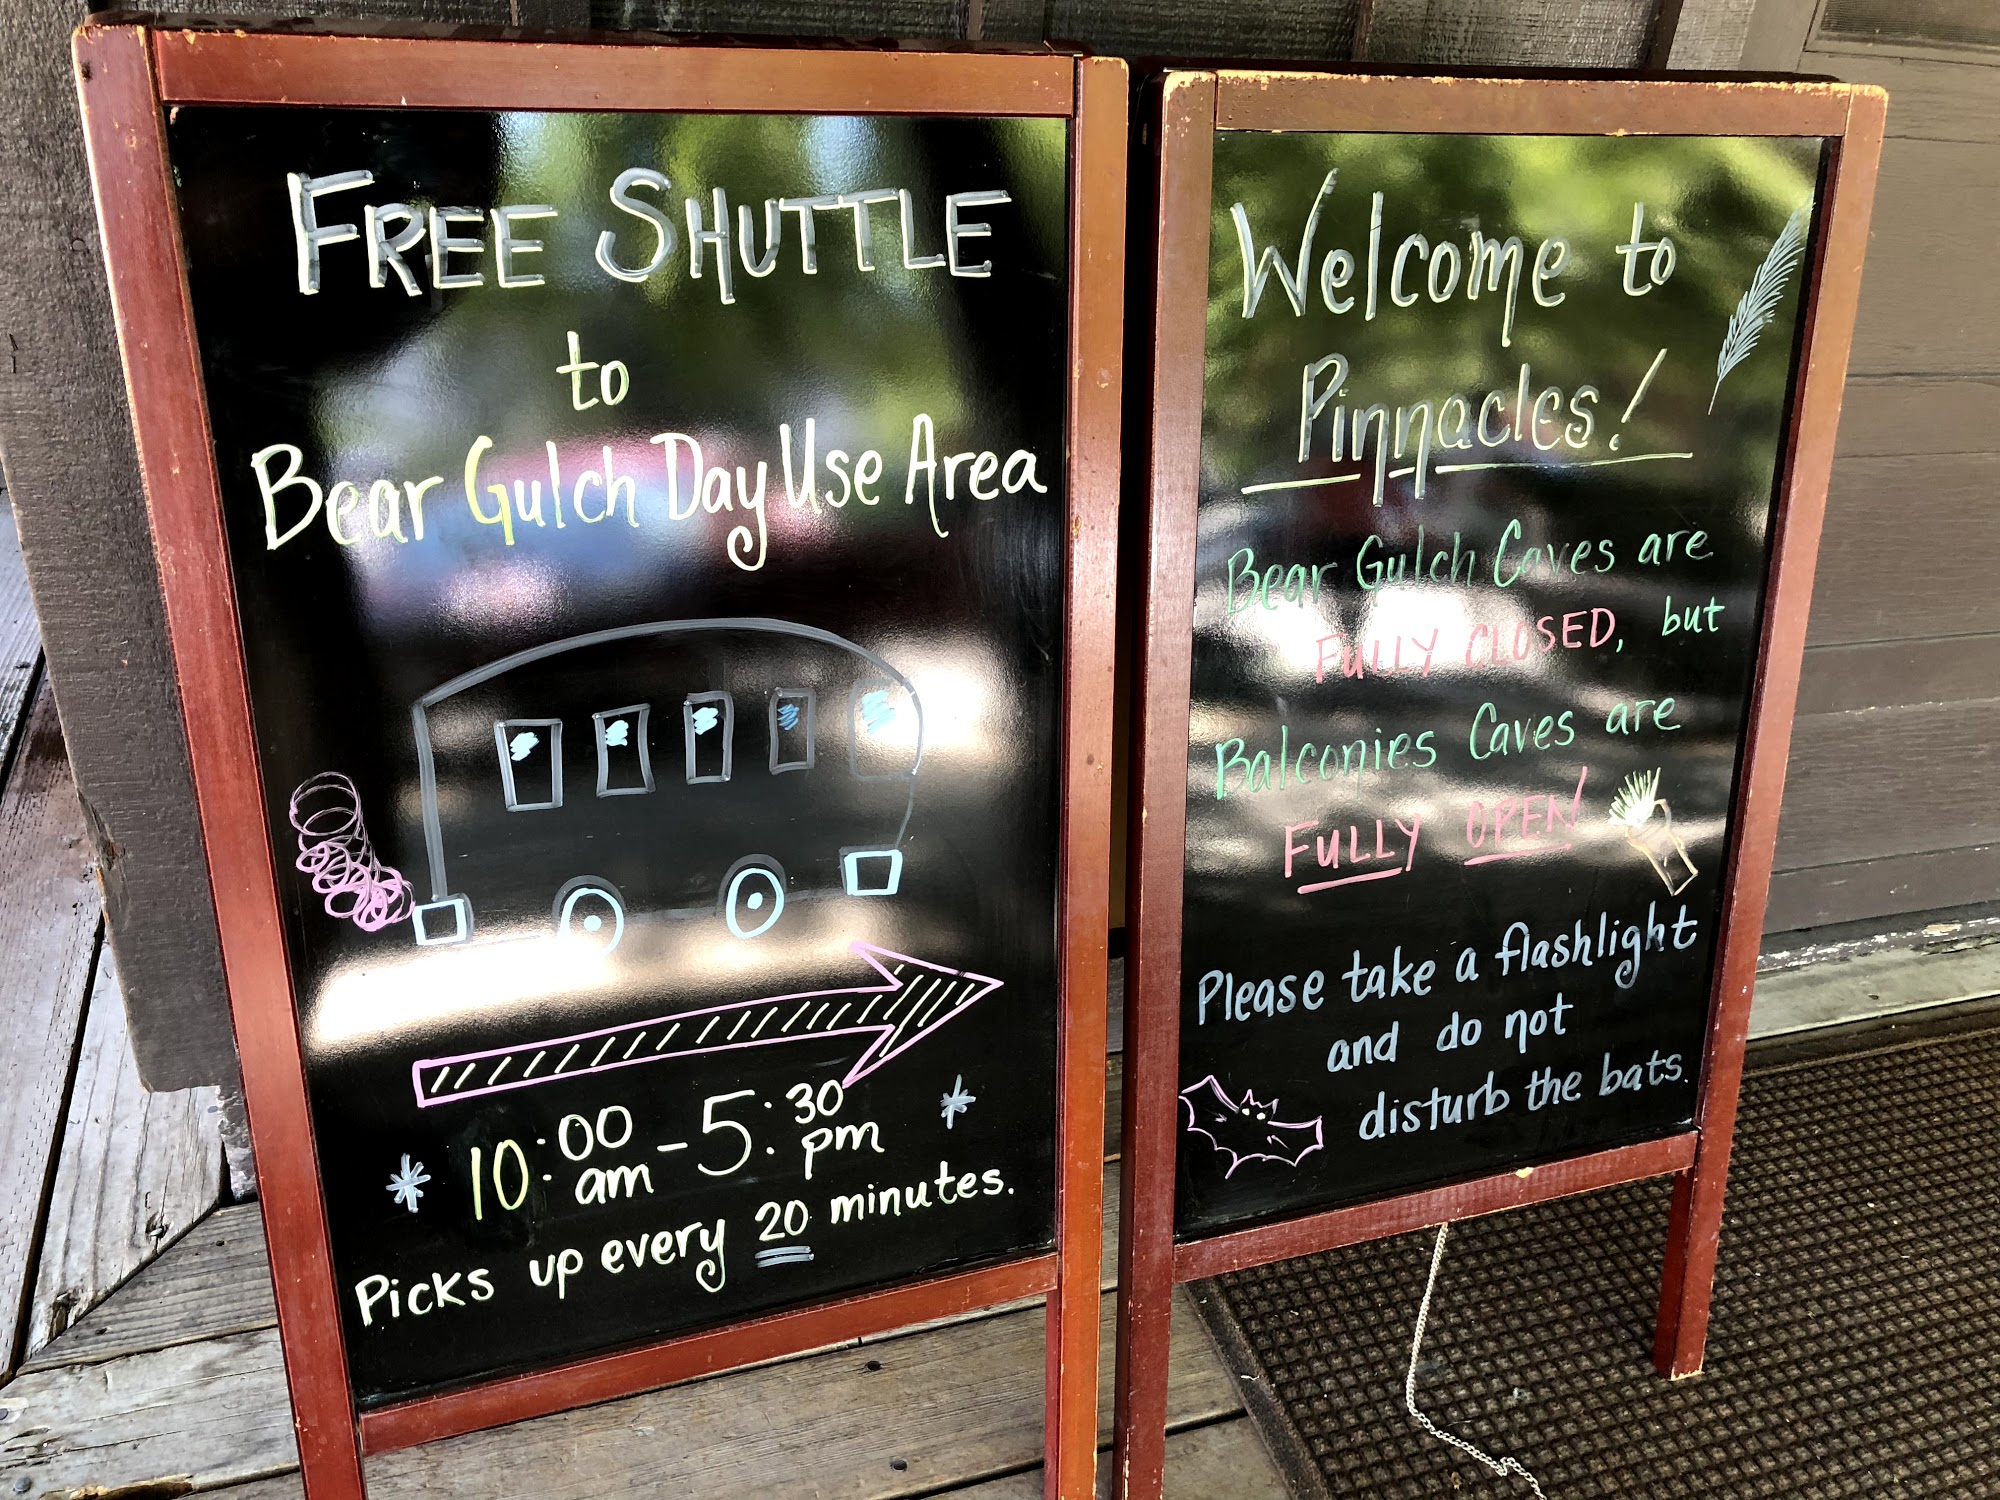 FREE SHUTTLE
to
Bear Gulch Day Use Area
10:00 am - 5:30 pm
Picks up every 20 minutes.
Welcome to
Pinnacles!
Bear Gulch Caves are
FULLY CLOSED, but
Balconies Caves are
FULLY OPEN!
Please take a flashlight
and do not
disturb the bats.